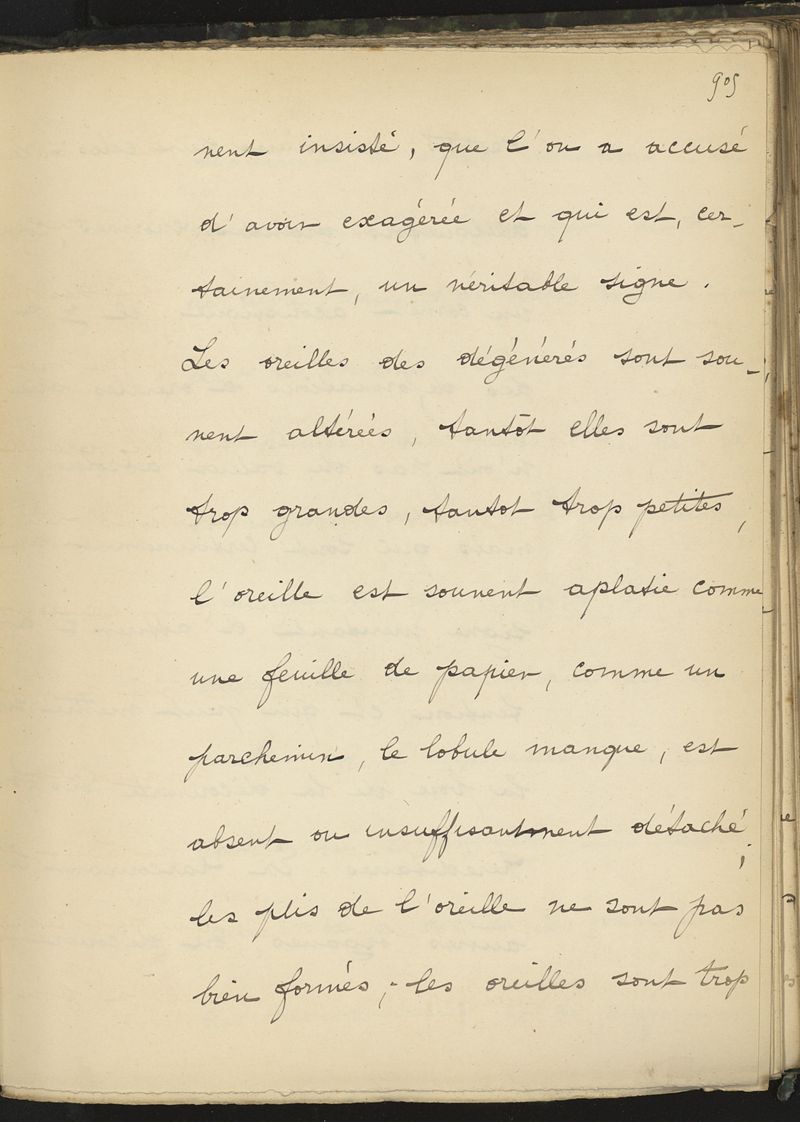 905
vent insisté, que l'on a accusé
d'avoir exagérée et qui est, cer-
tainement, un véritable signe.
Les oreilles des dégénérés sont sou-
vent altérées, tantôt elles sont
trop grandes, tantot trop petites,
l'oreille est souvent aplatie comme
une feuille de papier, comme un
parchemin, le lobule manque, est
absent ou insuffisamment détaché;
les plis de l'oreille ne sont pas
bien formés; les oreilles sont trop